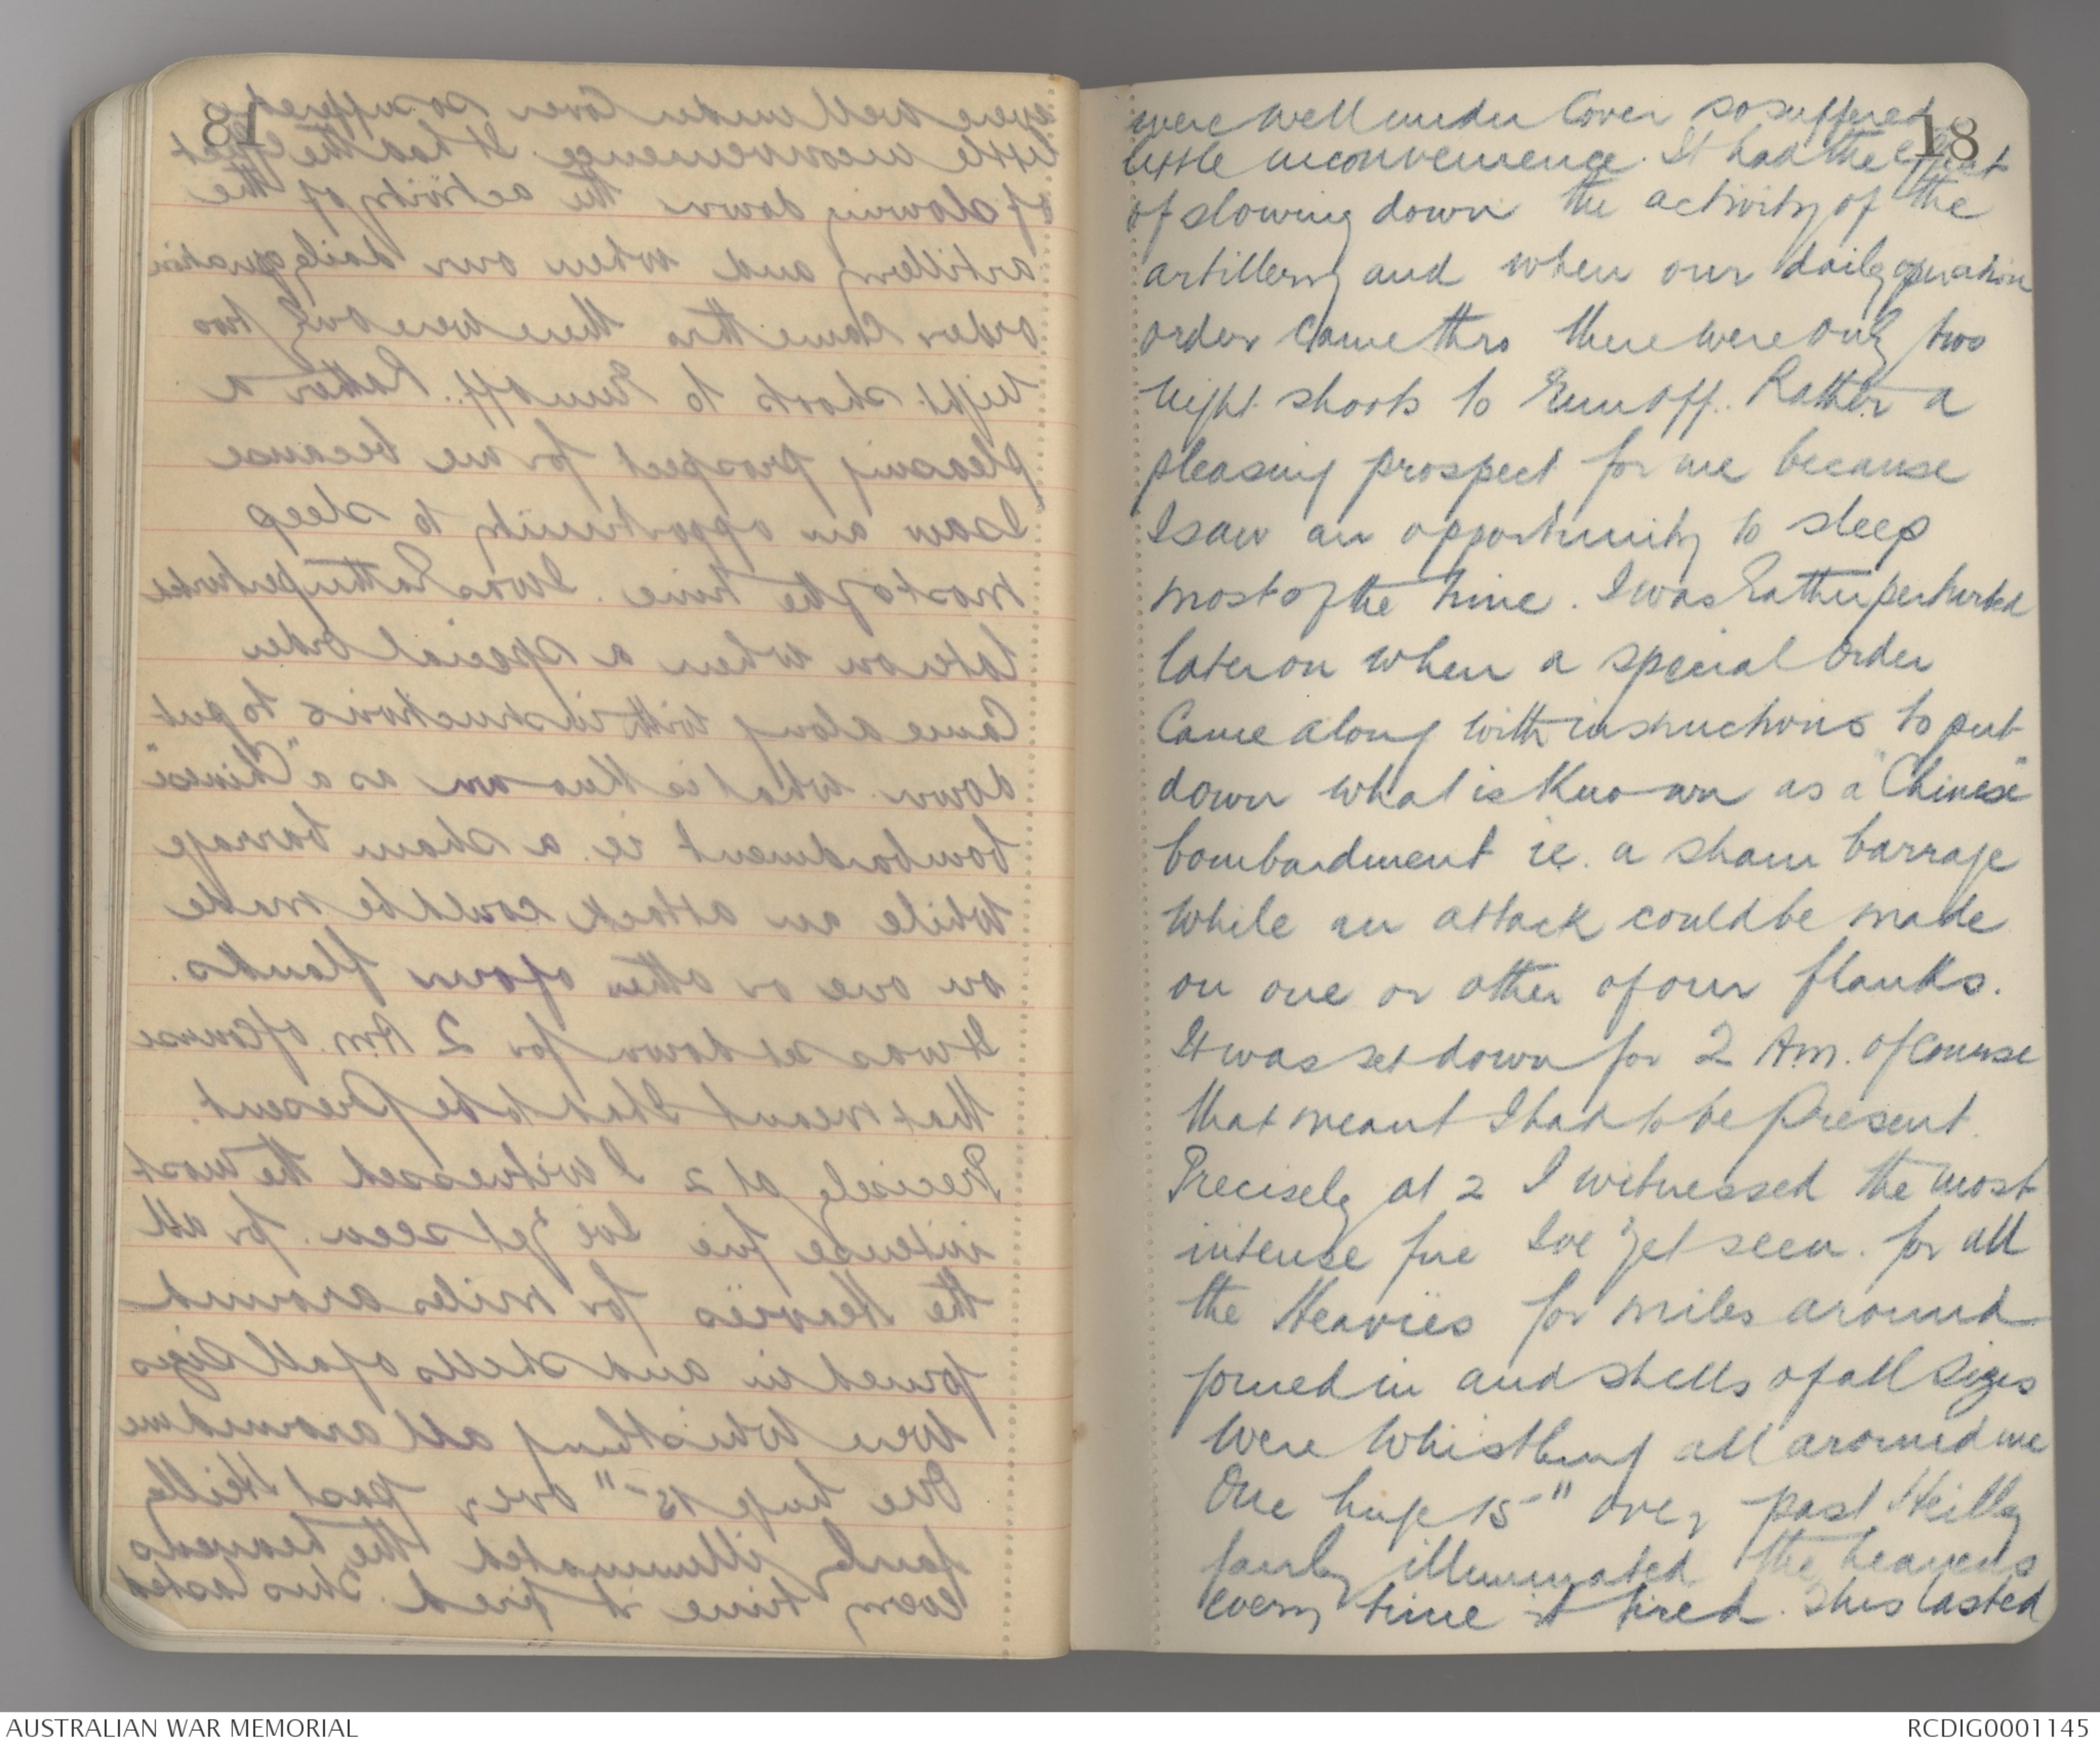 18
were well under Cover so suffered
little inconvenience. It had the effect
of slowing down the activity of the
artillery and when our daily operation
order came thro there were only two
night shoots to run off. Rather a
pleasing prospect for me because
I saw an opportunity to sleep
most of the time. I was rather perturbed
later on when a special order
Came along with instructions to put
down what is known as a "Chinese"
bombardment ie. a sham barrage
while an attack could be made
on one or other of our flanks.
It was set down for 2 Am. of course
that meant I had to be Present.
Precisely at 2 I witnessed the most
intense fire Ive yet seen. for all
the Heavies for miles around
joined in and shells of all sizes
were whistling all around me
One huge 15" over past Heilly
fairly illuminated the heavens
every time it fired. This lasted
AUSTRALIAN WAR MEMORIAL
RCDIG0001145